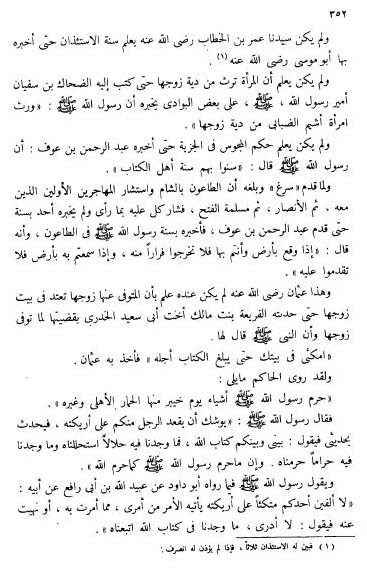 ٣٥٢
ولم يكن سيدنا عمر بن الخطاب رضى الله عنه يعلم سنة الاستئذان حتى أخبره
بها أبو موسى رضى الله عنه (١) .
ولم يكن يعلم أن المرأة ترث من دية زوجها حتى كتب إليه الضحاك بن سفيان
أمير رسول الله ، ﷺ ، على بعض البوادى يخبره أن رسول الله ﷺ : «ورث
امرأة أشيم الضبابى من دية زوجها» .
ولم يكن يعلم حكم المجوس فى الجزية حتى أخبره عبد الرحمن بن عوف : أن
رسول الله ﷺ قال : «سنوا بهم سنة أهل الكتاب» .
ولما قدم «سرغ» وبلغه أن الطاعون بالشام واستشار المهاجرين الأولين الذين
معه . ثم الأنصار ، ثم مسلمة الفتح ، فشار كل عليه بما رأى ولم يخبره أحد بسنة
حتى قدم عبد الرحمن بن عوف ، فأخبره بسنة رسول الله ﷺ فى الطاعون ، وأنه
قال : «إذا وقع بأرض وأنتم بها فلا تخرجوا فراراً منه ، وإذا سمعتم به بأرض فلا
تقدموا عليه» .
وهذا عثمان رضى الله عنه لم يكن عنده علم بأن المتوفى عنها زوجها تعتد فى بيت
زوجها حتى حدثته الفريعة بنت مالك أخت أبى سعيد الخدرى بقضيتها لما توفى
زوجها وأن النبى ﷺ قال لها .
«امكثى فى بيتك حتى يبلغ الكتاب أجله» فأخذ به عثمان .
ولقد روى الحاكم مايلى :
«حرم رسول الله ﷺ أشياء يوم خيبر منها الحمار الأهلى وغيره» .
فقال رسول الله ﷺ : «يوشك أن يقعد الرجل منكم على أريكته . فيحدث
بحديثى فيقول : بينى وبينكم كتاب الله ، فما وجدنا فيه حلالاً استحللناه وما وجدنا
فيه حراماً حرمناه . وإن ماحرم رسول الله ﷺ كماحرم الله» .
ويقول رسول الله ﷺ فيما رواه أبو داود عن عبيد الله بن أبى رافع عن أبيه :
«لا ألفين أحدكم متكئاً على أريكته يأتيه الأمر من أمرى ، مما أمرت به ، أو نهيت
عنه فيقول : لا أدرى ، ما وجدنا فى كتاب الله اتبعناه» .
(١) فبين له الاستئذان ثلاثاً ، فإذا لم يؤذن له انصرف :